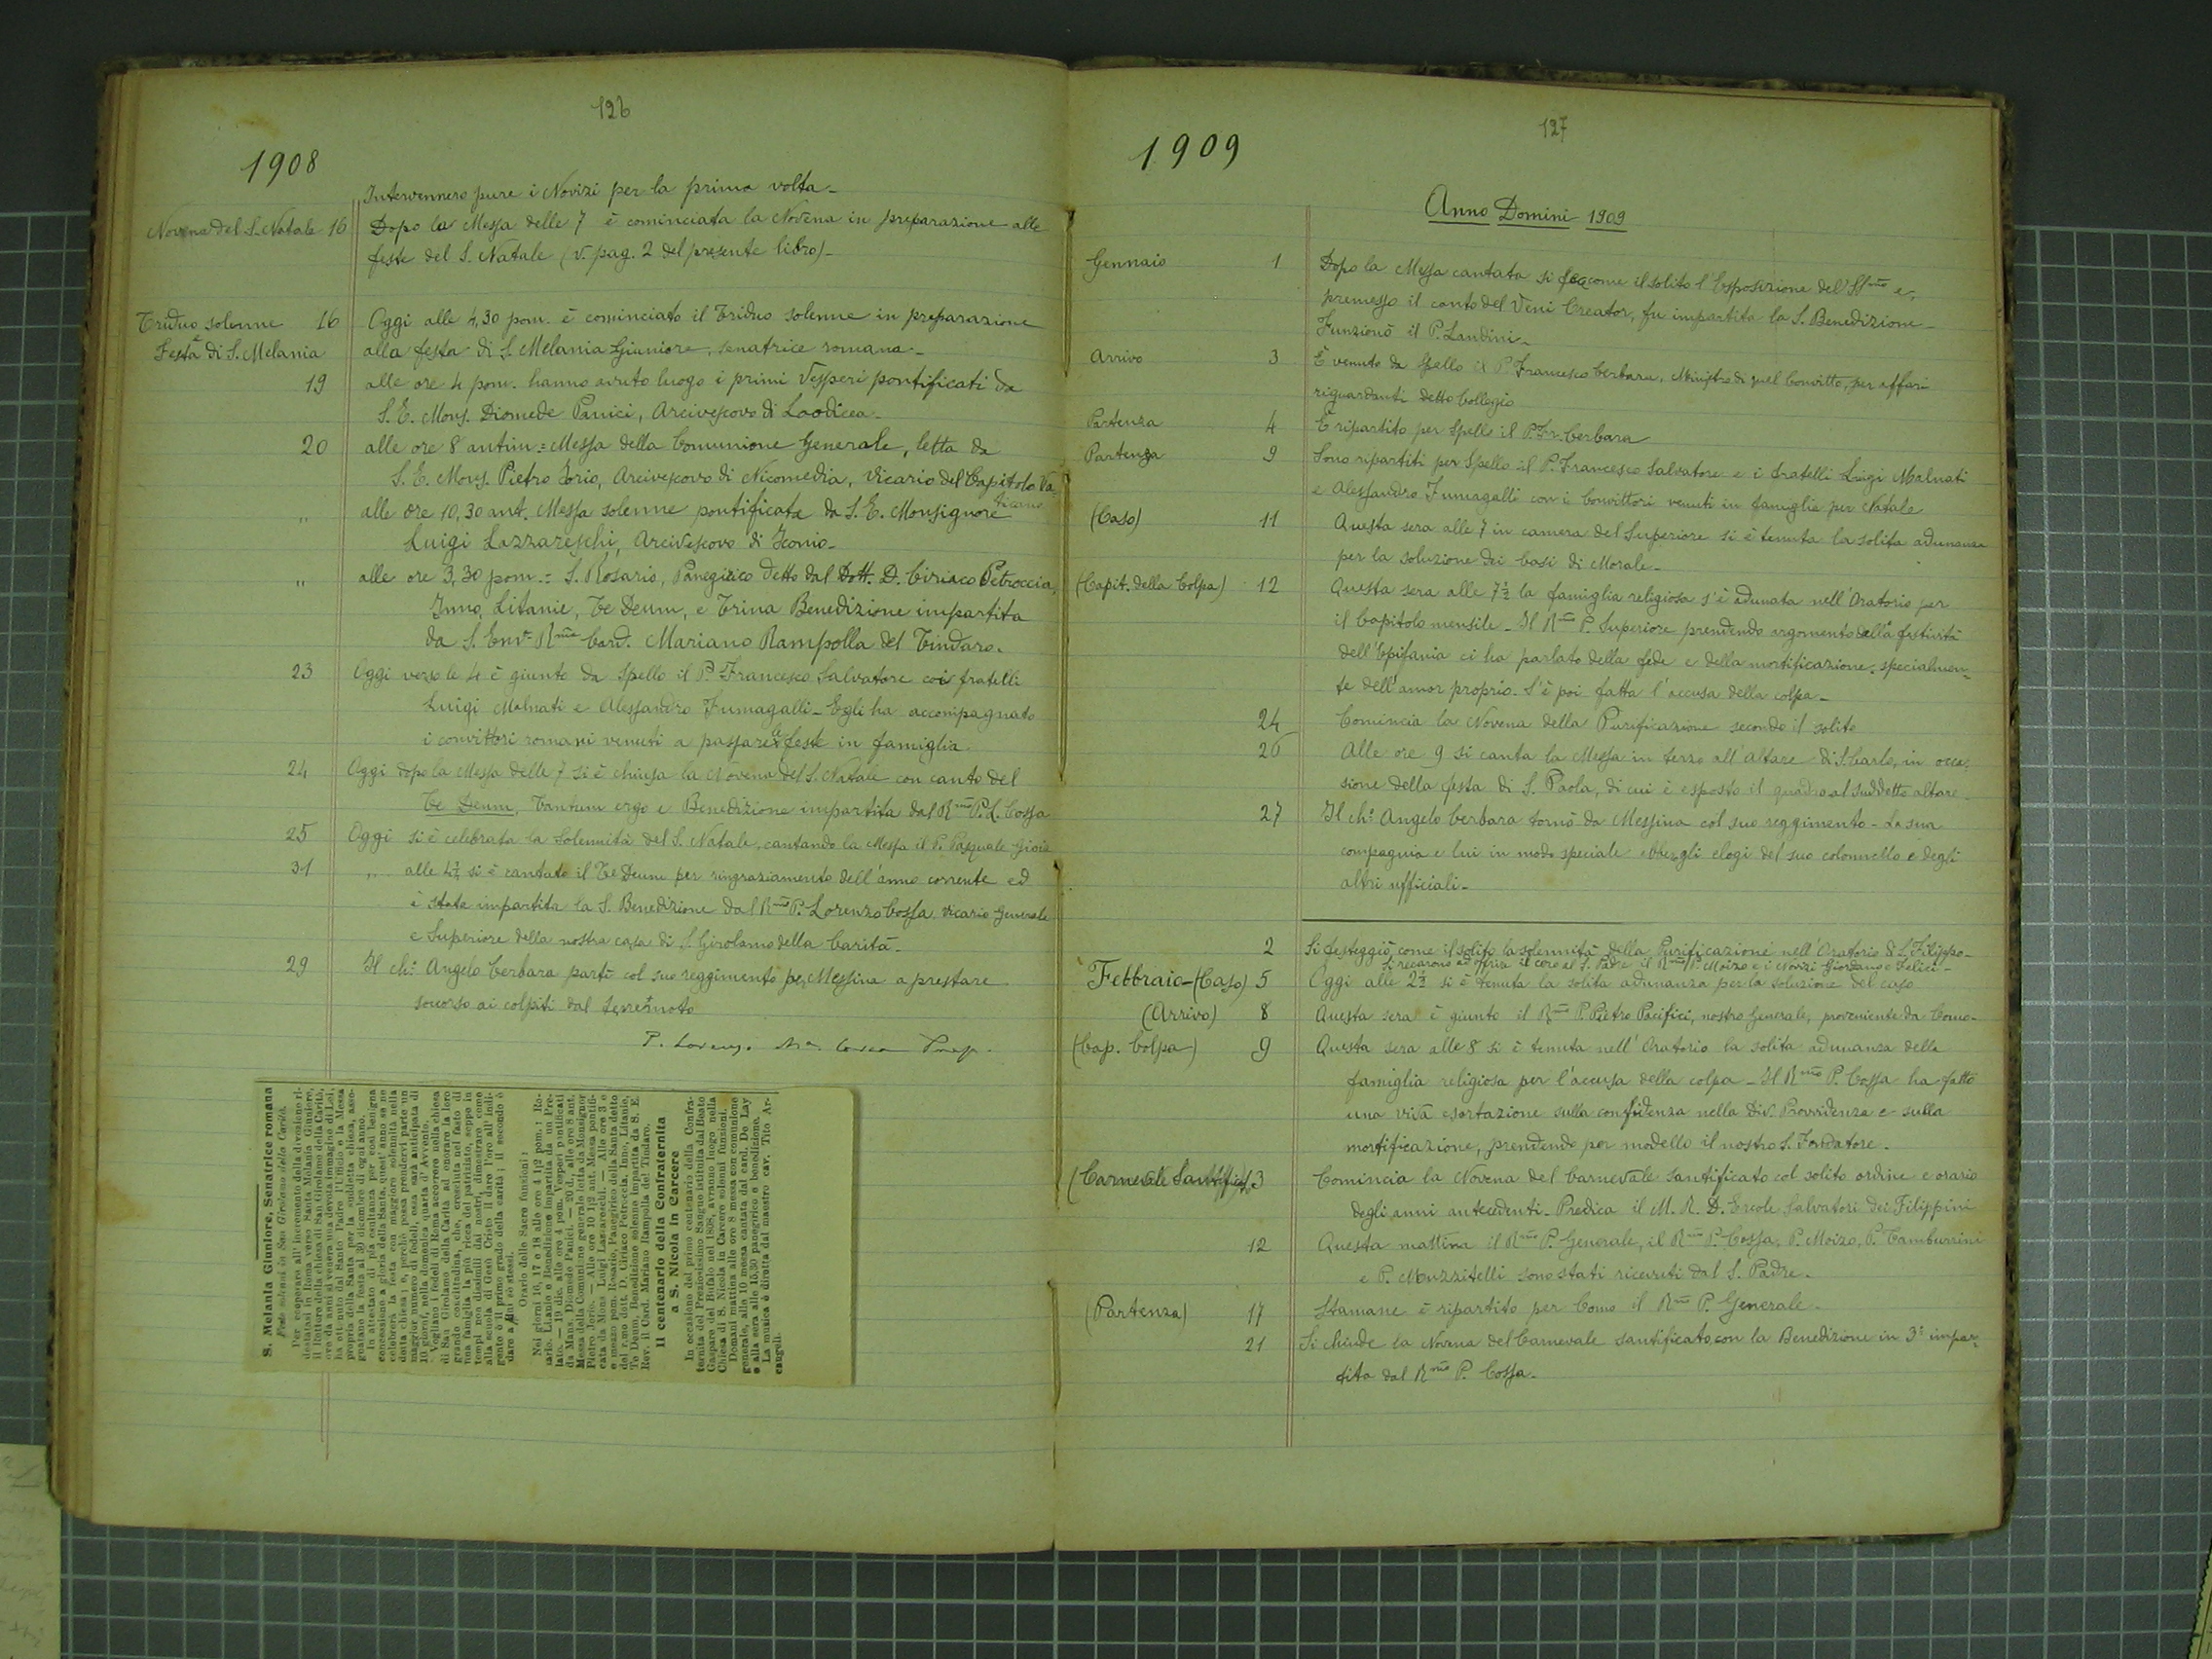 126
1908
Intervennero pure i Novizi per la prima volta-
Novena del S. Natale 16 Dopo la Messa delle 7 è cominciata la Novena in preparazione alle
feste del S. Natale (v. pag. 2 del presente libro)-
Triduo solenne 16 Oggi alle 4,30 pom. è cominciato il Triduo solenne in preparazione
Festa di S. Melania alla festa di S. Melania Giuniore, senatrice romana-
19 alle ore 4 pom. hanno avuto luogo i primi Vesperi pontificati da
S. E. Mons. Diomede Panici, Arcivescovo di Laodicea-
20 alle ore 8 antim = Messa della Comunione Generale, letta da
S. E. Mons. Pietro Jorio, Arcivescovo di Nicomedia, Vicario del Capitolo Va-
ticano
„ alle ore 10,30 ant. Messa solenne pontificata da S. E. Monsignore
Luigi Lazzareschi, Arcivescovo di Iconio-
„ alle ore 3,30 pom.= S. Rosario, Panegirico detto dal Dott. D. Ciriaco Petroccia,
Inno, Litanie, Te Deum, e Trina Benedizione impartita
da S. Em. Rma Card. Mariano Rampolla del Tindaro.
23 Oggi verso le 4 è giunto da Spello il P. Francesco Salvatore coi fratelli
Luigi Malnati e Alessandro Fumagalli- Egli ha accompagnato
i convittori romani venuti a passare le feste in famiglia.
24 Oggi dopo la Messa delle 7 si è chiusa la Novena del S. Natale con canto del
Te Deum, Tantum ergo e Benedizione impartita dal Rmo P. L. Cossa
25 Oggi si è celebrata la solennità del S. Natale, cantando la Messa il P. Pasquale Gioia
31 „ alle 4½ si è cantato il Te Deum per ringraziamento dell'anno corrente ed
è stata impartita la S. Benedizione dal Rmo P. Lorenzo Cossa vicario Generale
e Superiore della nostra casa di S. Girolamo della Carità-
29 Il ch.o Angelo Cerbara partì col suo reggimento per Messina a prestare
soccorso ai colpiti dal terremoto
P. Lorenzo Cossa Prep.
S. Melania Giuniore, Senatrice romana
Feste solenni in San Girolamo della Carità.
Per cooperare all'incremento della divozione ri-
destatasi in Roma verso Santa Melania Giuniore,
il Rettore della chiesa di San Girolamo della Carità,
ove da anni si venera una devota immagine di Lei,
ha ottenuto dal Santo Padre l'Ufficio e la Messa
propria della Santa per la suddetta chiesa, asse-
gnatane la festa al 30 dicembre di ogni anno.
In attestato di pia esultanza per così benigna
concessione a gloria della Santa, quest'anno se ne
celebrerà la festa con maggiore solennità nella
detta chiesa; e, perchè possa prendervi parte un
maggior numero di fedeli, essa sarà anticipata di
10 giorni, nella domenica quarta d'Avvento.
Vogliano i fedeli di Roma accorrere nella chiesa
di San Girolamo della Carità ad onorare la loro
grande concittadina, che, cresciuta nel fasto di
una famiglia la più ricca del patriziato, seppe in
tempi non dissimili dai nostri, dimostrare come
alla scuola di Gesù Cristo il dare l'oro all'indi-
gente è il primo grado della carità; il secondo è
dare a lui sè stessi.
Orario delle Sacre funzioni:
Nei giorni 16, 17 e 18 alle ore 4 1|2 pom.: Ro-
sario, Litanie e Benedizione impartita da un Pre-
lato. — 19 dic. alle ore 4 pom. Vesperi pontificati
da Mons. Diomede Panici. — 20 d., alle ore 8 ant.
Messa della Comunione generale letta da Monsignor
Pietro Jorio. — Alle ore 10 1|2 ant. Messa pontifi-
cata da Mons Luigi Lazzareschi. — Alle ore 3 e
e mezzo pom. Rosario, Panegirico della Santa detto
dal r.mo dott. D. Ciriaco Petroccia. Inno, Litanie,
Te Deum, Benedizione solenne impartita da S. E.
Rev. il Card. Mariano Rampolla del Tindaro.
Il centenario della Confraternita
a S. Nicola in Carcere
In occasione del primo centenario della Confra-
ternita del Preziosissimo Sangue istituita dal Beato
Gaspare del Bufalo nel 1808, avranno luogo nella
Chiesa di S. Nicola in Carcere solenni funzioni.
Domani mattina alle ore 8 messa con comunione
generale, alle 10 messa cantata dal card. De Lay
e alla sera alle 15,30 panegirico e benedizione.
La musica è diretta dal maestro cav. Tito Ar-
cangeli.
127
1909
Anno Domini 1909
Gennaio 1 Dopo la Messa cantata si fece come il solito l'Esposizione del SSmo e,
premesso il canto del Veni Creator, fu impartita la S. Benedizione-
Funzionò il P. Landini-
Arrivo 3 È venuto da Spello il P. Francesco Cerbara, Ministro di quel Convitto, per affari
riguardanti detto Collegio
Partenza 4 È ripartito per Spello il P. Fr. Cerbara
Partenza 9 Sono ripartiti per Spello il P. Francesco Salvatore e i fratelli Luigi Malnati
e Alessandro Fumagalli con i Convittori venuti in famiglia per Natale
(Caso) 11 Questa sera alle 7 in camera del Superiore si è tenuta la solita adunanza
per la soluzione dei Casi di Morale-
(Capit. della Colpa) 12 Questa sera alle 7½ la famiglia religiosa s'è adunata nell'Oratorio per
il Capitolo mensile- Il Rmo P. Superiore prendendo argomento dalla festività
dell'Epifania ci ha parlato della fede e della mortificazione, specialmen-
te dell'amor proprio. S'è poi fatta l'accusa della colpa-
24 Comincia la Novena della Purificazione secondo il solito
26 Alle ore 9 si canta la Messa in terzo all'altare di S. Carlo, in occa-
sione della festa di S. Paola, di cui è esposto il quadro al suddetto altare-
27 Il ch.o Angelo Cerbara tornò da Messina col suo reggimento- La sua
compagnia e lui in modo speciale ebbe gli elogi del suo colonnello e degli
altri ufficiali-
2 Si festeggiò come il solito la solennità della Purificazione nell'Oratorio di S. Filippo-
Si recarono ad offrire il cero al S. Padre il Rmo P. Moizo e i Novizi Giordano e Felici-
Febbraio-(Caso) 5 Oggi alle 2½ si è tenuta la solita adunanza per la soluzione del caso
(Arrivo) 8 Questa sera è giunto il Rmo P. Pietro Pacifici, nostro Generale, proveniente da Como-
(Cap. Colpa) 9 Questa sera alle 8 si è tenuta nell'Oratorio la solita adunanza della
famiglia religiosa per l'accusa della colpa- Il Rmo P. Cossa ha fatto
una viva esortazione sulla confidenza nella Div. Provvidenza e sulla
mortificazione, prendendo per modello il nostro S. Fondatore.
(Carnevale Santificato) 13 Comincia la Novena del Carnevale santificato col solito ordine e orario
degli anni antecedenti. Predica il M. R. D. Ercole Salvatori dei Filippini
12 Questa mattina il Rmo P. Generale, il Rmo P. Cossa, P. Moizo, P. Tamburrini
e P. Muzzitelli sono stati ricevuti dal S. Padre.
(Partenza) 17 Stamane è ripartito per Como il Rmo P. Generale-
21 Si chiude la Novena del Carnevale santificato, con la Benedizione in 3o impar-
tita dal Rmo P. Cossa.